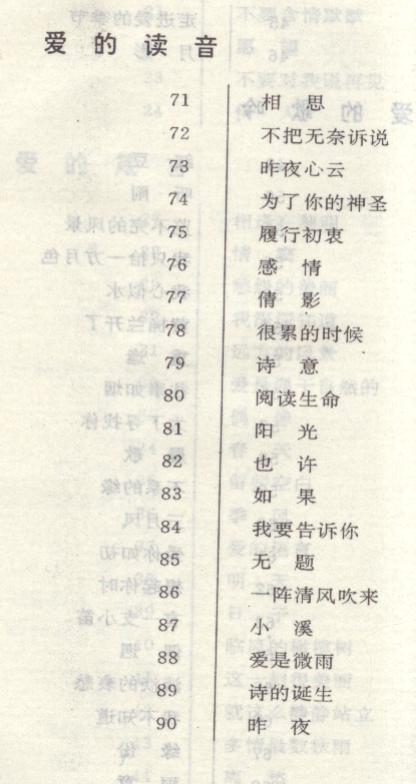 爱的读音
71 相思
72 不把无奈诉说
73 昨夜心云
74 为了你的神圣
75 履行初衷
76 感情
77 倩影
78 很累的时候
79 诗意
80 阅读生命
81 阳光
82 也许
83 如果
84 我要告诉你
85 无题
86 一阵清风吹来
87 小溪
88 爱是微雨
89 诗的诞生
90 昨夜